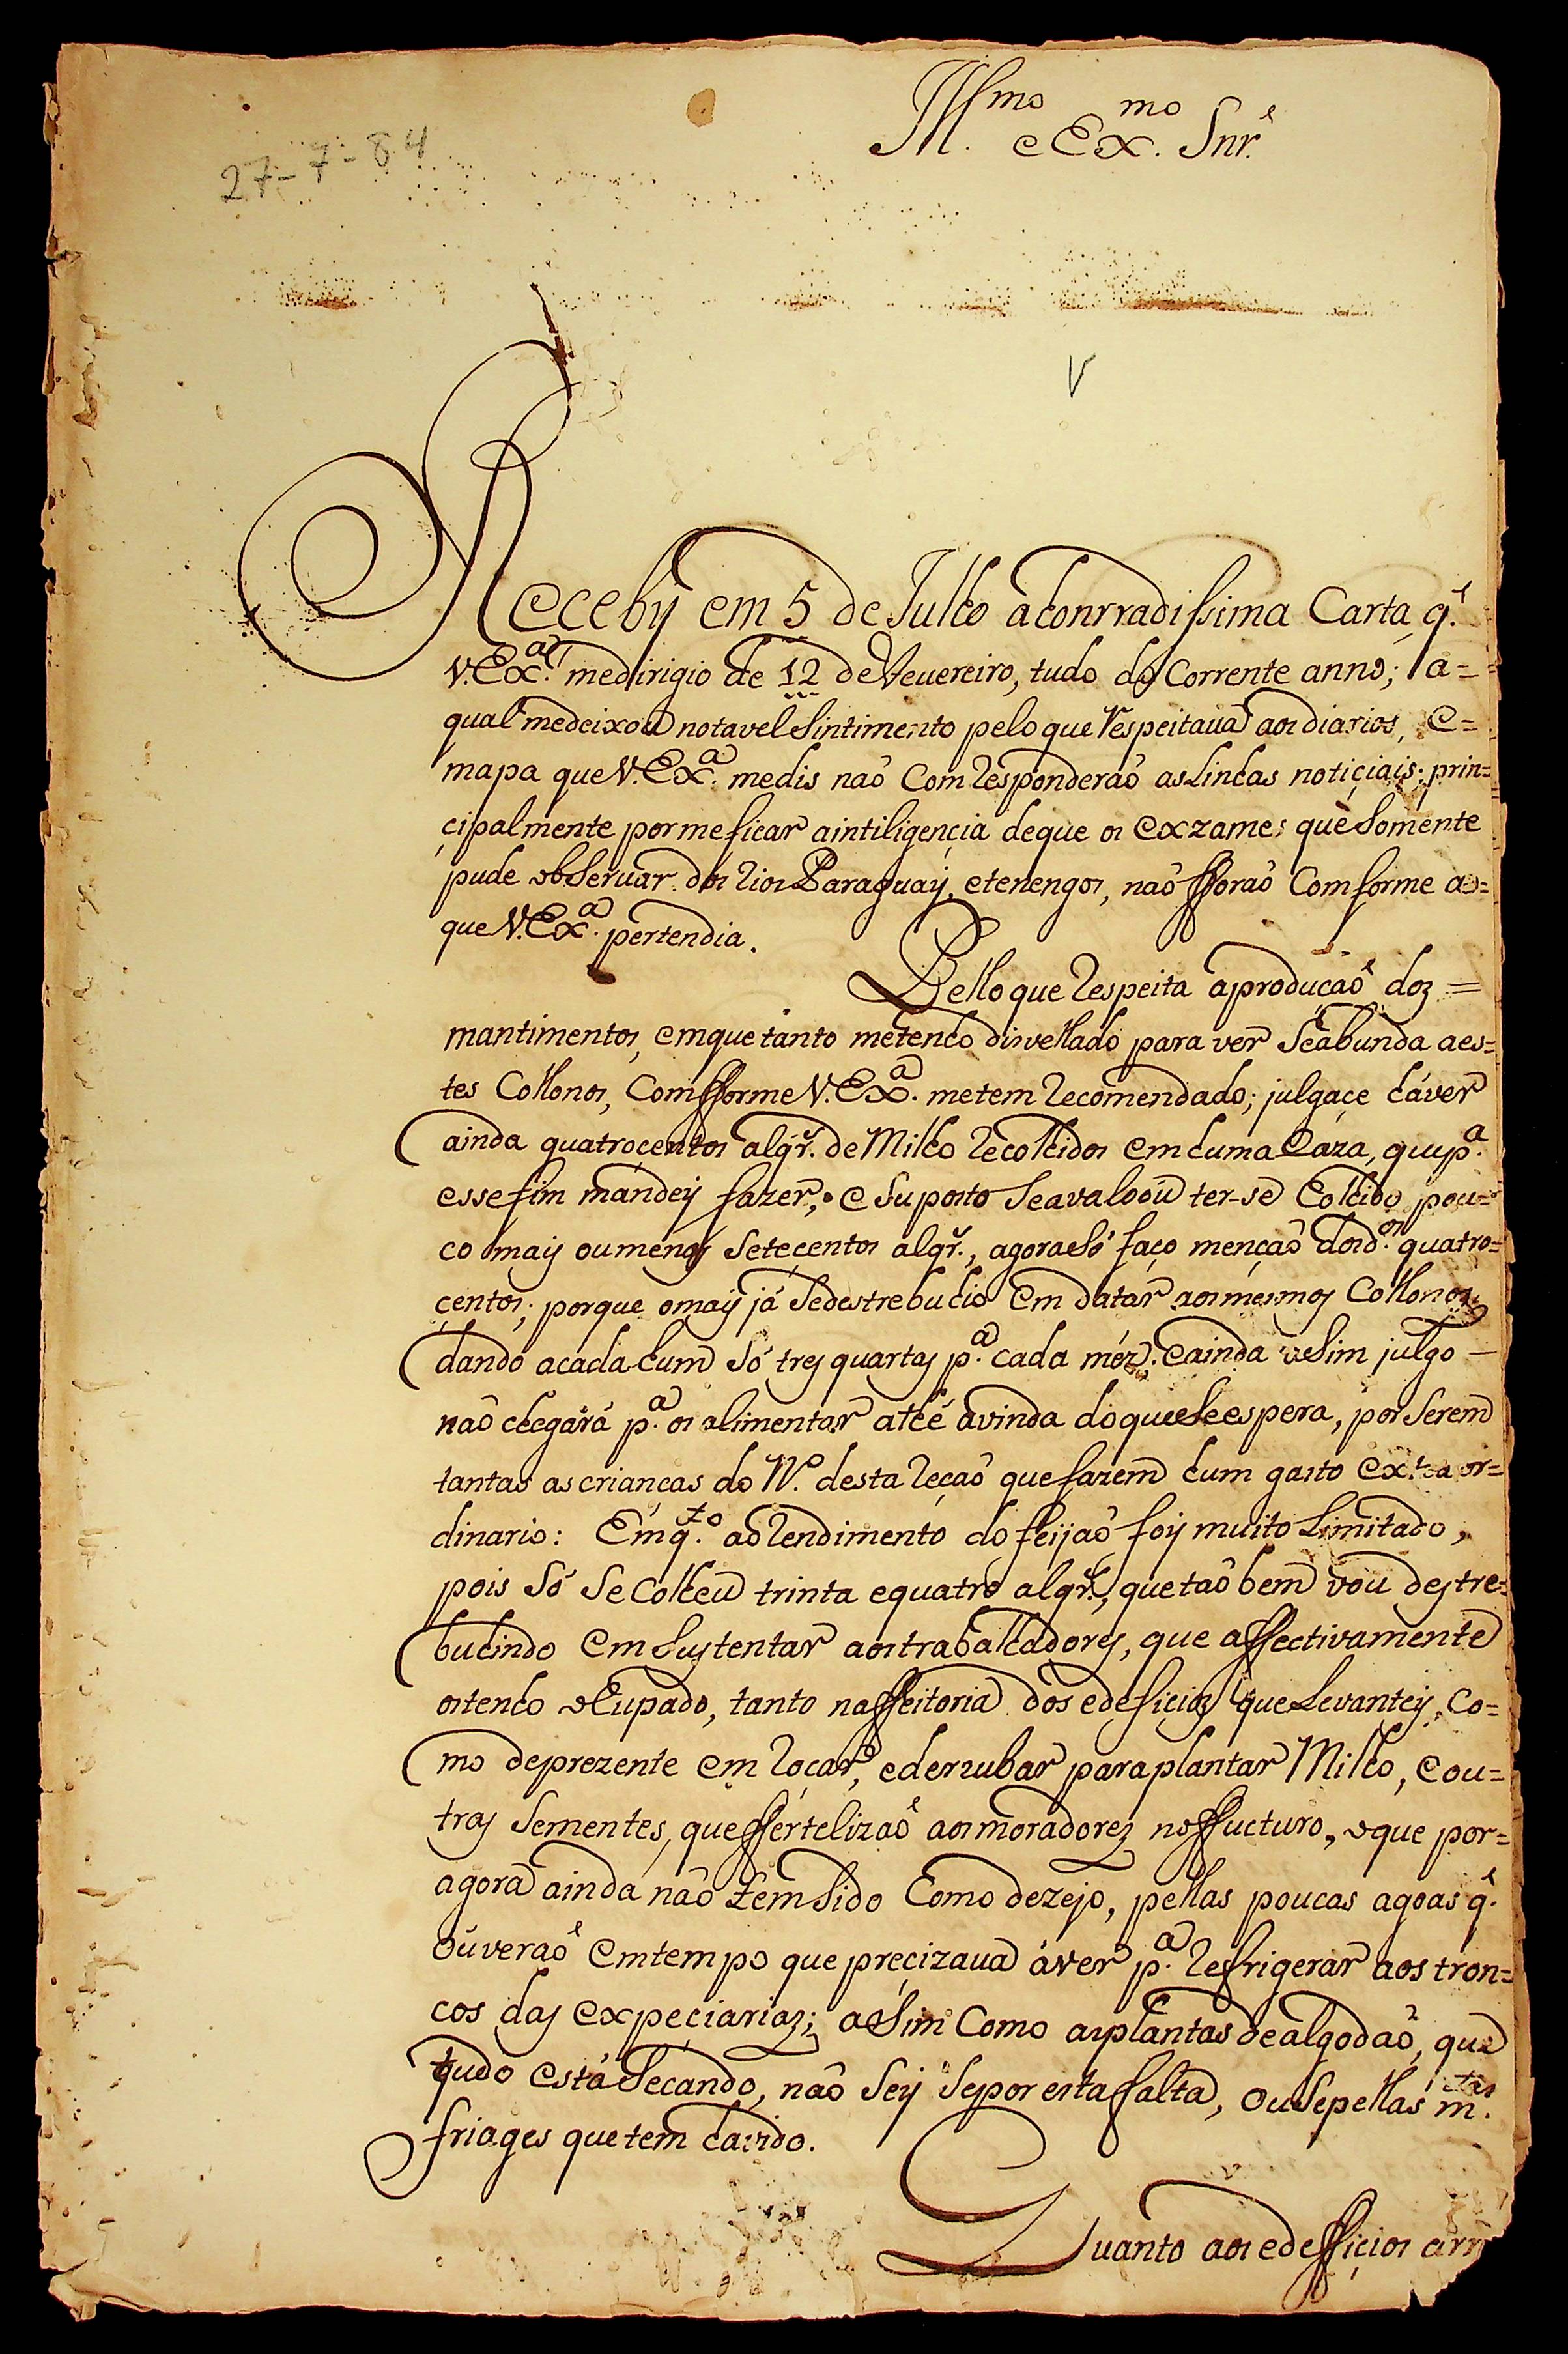 27-7-84
Ill.mo e Ex.mo Snr.
V
Receby em 5 de Julho ahonrradissima Carta, q.
V. Ex.a medirigio de 12 deFevereiro, tudo do Corrente anno; a=
qual medeixou notavel Sintimento pelo que respeitava aos diarios, e=
mapa que V. Ex.a medis naõ Comresponderaõ as Linhas notiçiais; prin=
çipalmente por me ficar aintiligençia deque os exzames que Sómente
pude observar dos rios Paraguaÿ, etenengos, naõ fforaõ Comforme ao=
que V. Ex.a pertendia.
Pello que respeita aproduçaõ doz =
mantimentos, emque tanto metenho disvellado para ver Seabunda aes=
tes Collonos, Comfforme V. Ex.a metem recomendado; julgaçe háver
ainda quatrocentos alqr. de Milho recolhidos emhuma Caza, que p.a
essefim mandeÿ fazer, e Suposto Seavaloou ter-se Colhido, pou=
co mais oumenos Seteçentos alqr., agoraSó faço mençaõ dosd.os quatro=
çentos; porque omais já Sedestrebuhio em datar aosmesmos Collonos,
dando acadahum Só tres quartas p.a cada méz. e ainda aSim julgo —
naõ chegará p.a os alimentar athé avinda doqueSeespera, por Serem
tantas as criancas do N.o desta reçaõ que fazem hum gasto extraor=
dinario: Emq.to aorendimento do feijaõ foÿ muito Limitado,
pois Só Se Colheu trinta equatro alqr., que taõ bem vou destre=
buhindo em Sustentar aostrabalhadores, que affectivamente
ostenho oCupado, tanto naffeitoria dos edefiçios que Levanteÿ, Co=
mo deprezente em roçar, ederrubar paraplantar Milho, e ou=
tras Sementes, que ffertelizaõ aosmoradorez noffucturo, oque por=
agora ainda naõ tem Sido Como dezejo, pellas poucas agoas q.
ouveraõ emtempo que preçizava áver p.a refrigerar aos tron=
cos das expeçiariaz; aSim Como asplantas de algodaõ, que
tudo está Secando, naõ Seÿ Sepor esta falta, ou Sepellas m.tas
friages que tem havido.
Quanto aos edeffiçios arr